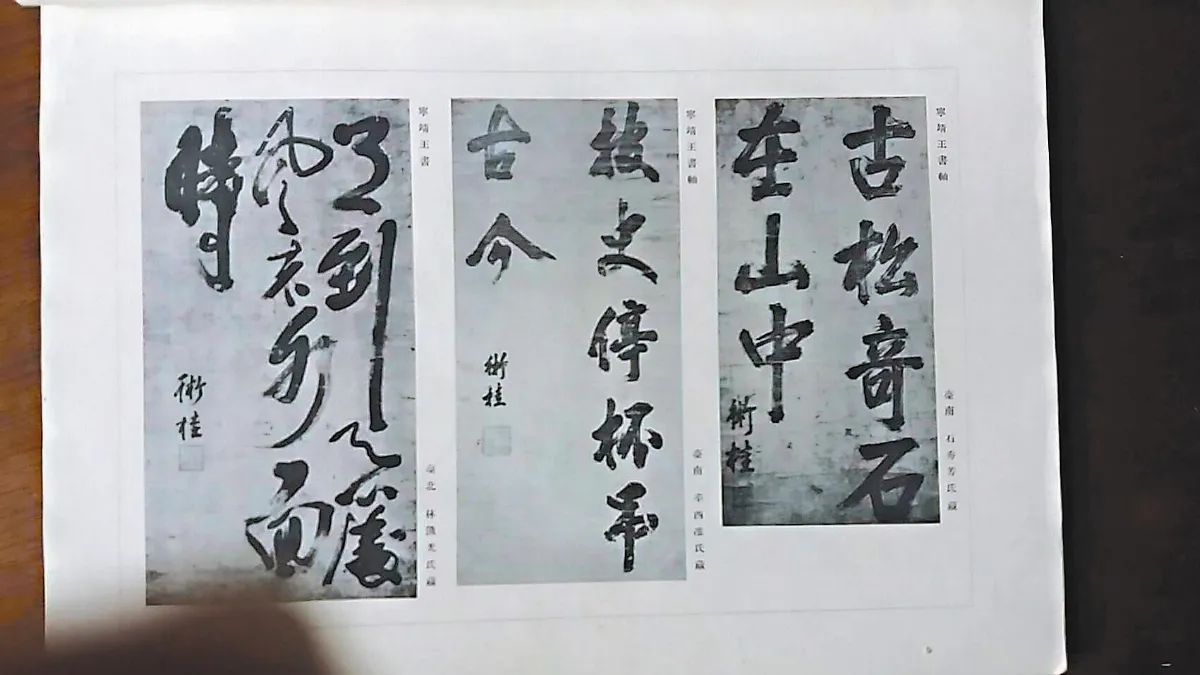 寧靖王書軸
臺南 石秀芳氏藏
古松奇石
在山中
術桂
寧靖王書軸
臺南 氏藏
披史停杯弔
古今
術桂
寧靖王書
臺北 林熊光氏藏
月到天心處
風來水面
時
術桂